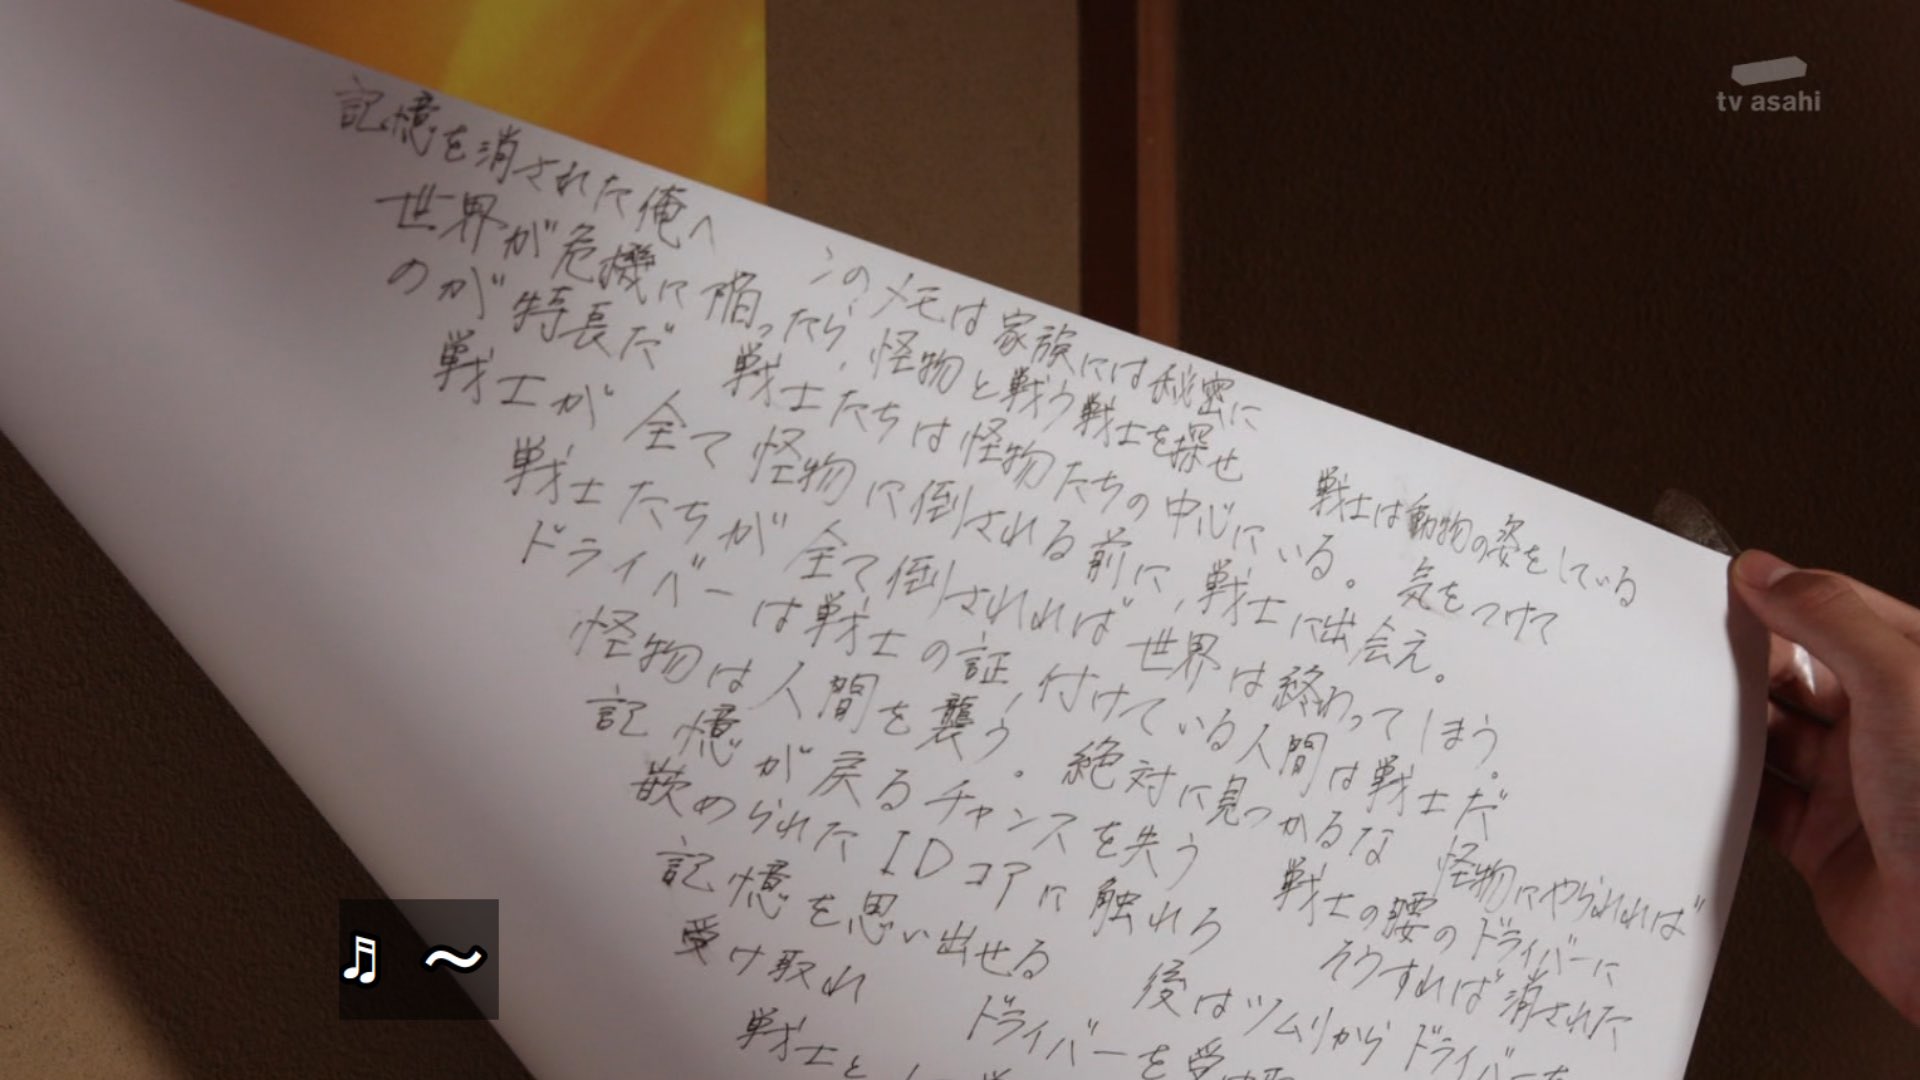 tv asahi
記憶を消された俺へ　このメモは家族には秘密に
世界が危機に陥ったら、怪物と戦う戦士を探せ　戦士は動物の姿をしている
のが特長だ　戦士たちは怪物たちの中心にいる。気をつけて
戦士が全て怪物に倒される前に、戦士に出会え。
戦士たちが全て倒されれば世界は終わってしまう。
ドライバーは戦士の証、付けている人間は戦士だ
怪物は人間を襲う。絶対に見つかるな　怪物にやられれば
記憶が戻るチャンスを失う　戦士の腰のドライバーに
嵌められたIDコアに触れろ　そうすれば消された
記憶を思い出せる　後はツムリからドライバーを
受け取れ　ドライバーを受け取
戦士と
♬～